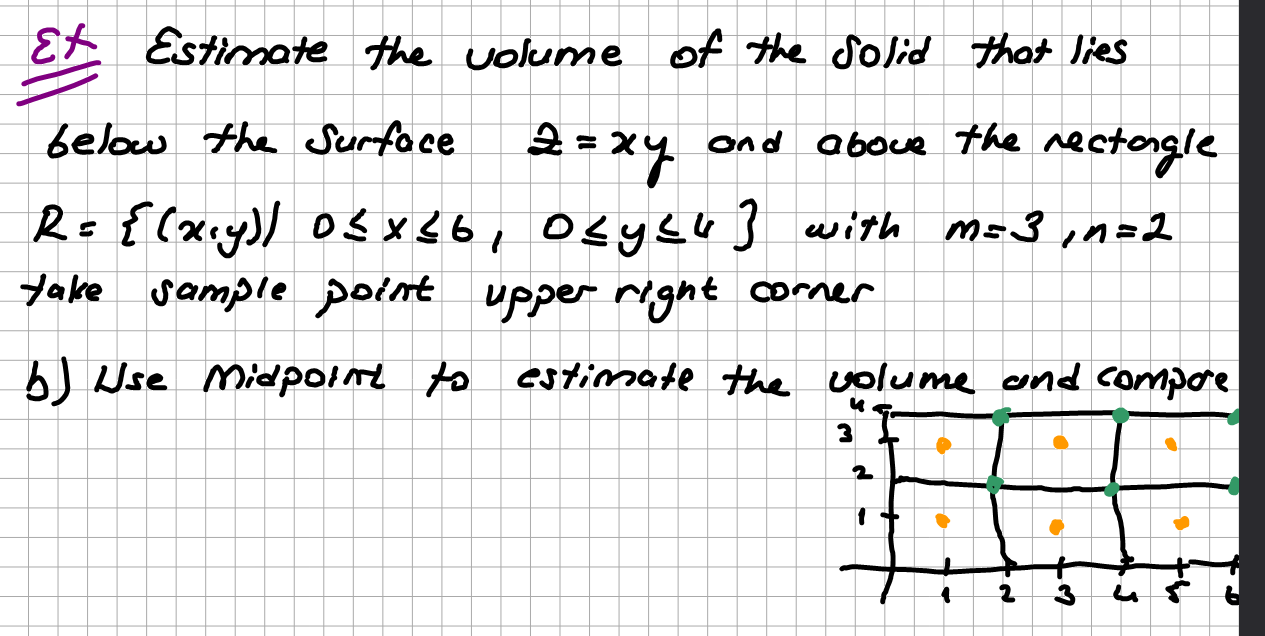 Ex Estimate the volume of the solid that lies
below the surface z = xy and above the rectangle
R = {(x,y)| 0 ≤ x ≤ 6, 0 ≤ y ≤ 4} with m=3, n=2
take sample point upper right corner
b) Use Midpoint to estimate the volume and compare
4
3
2
1
1 2 3 4 5 6